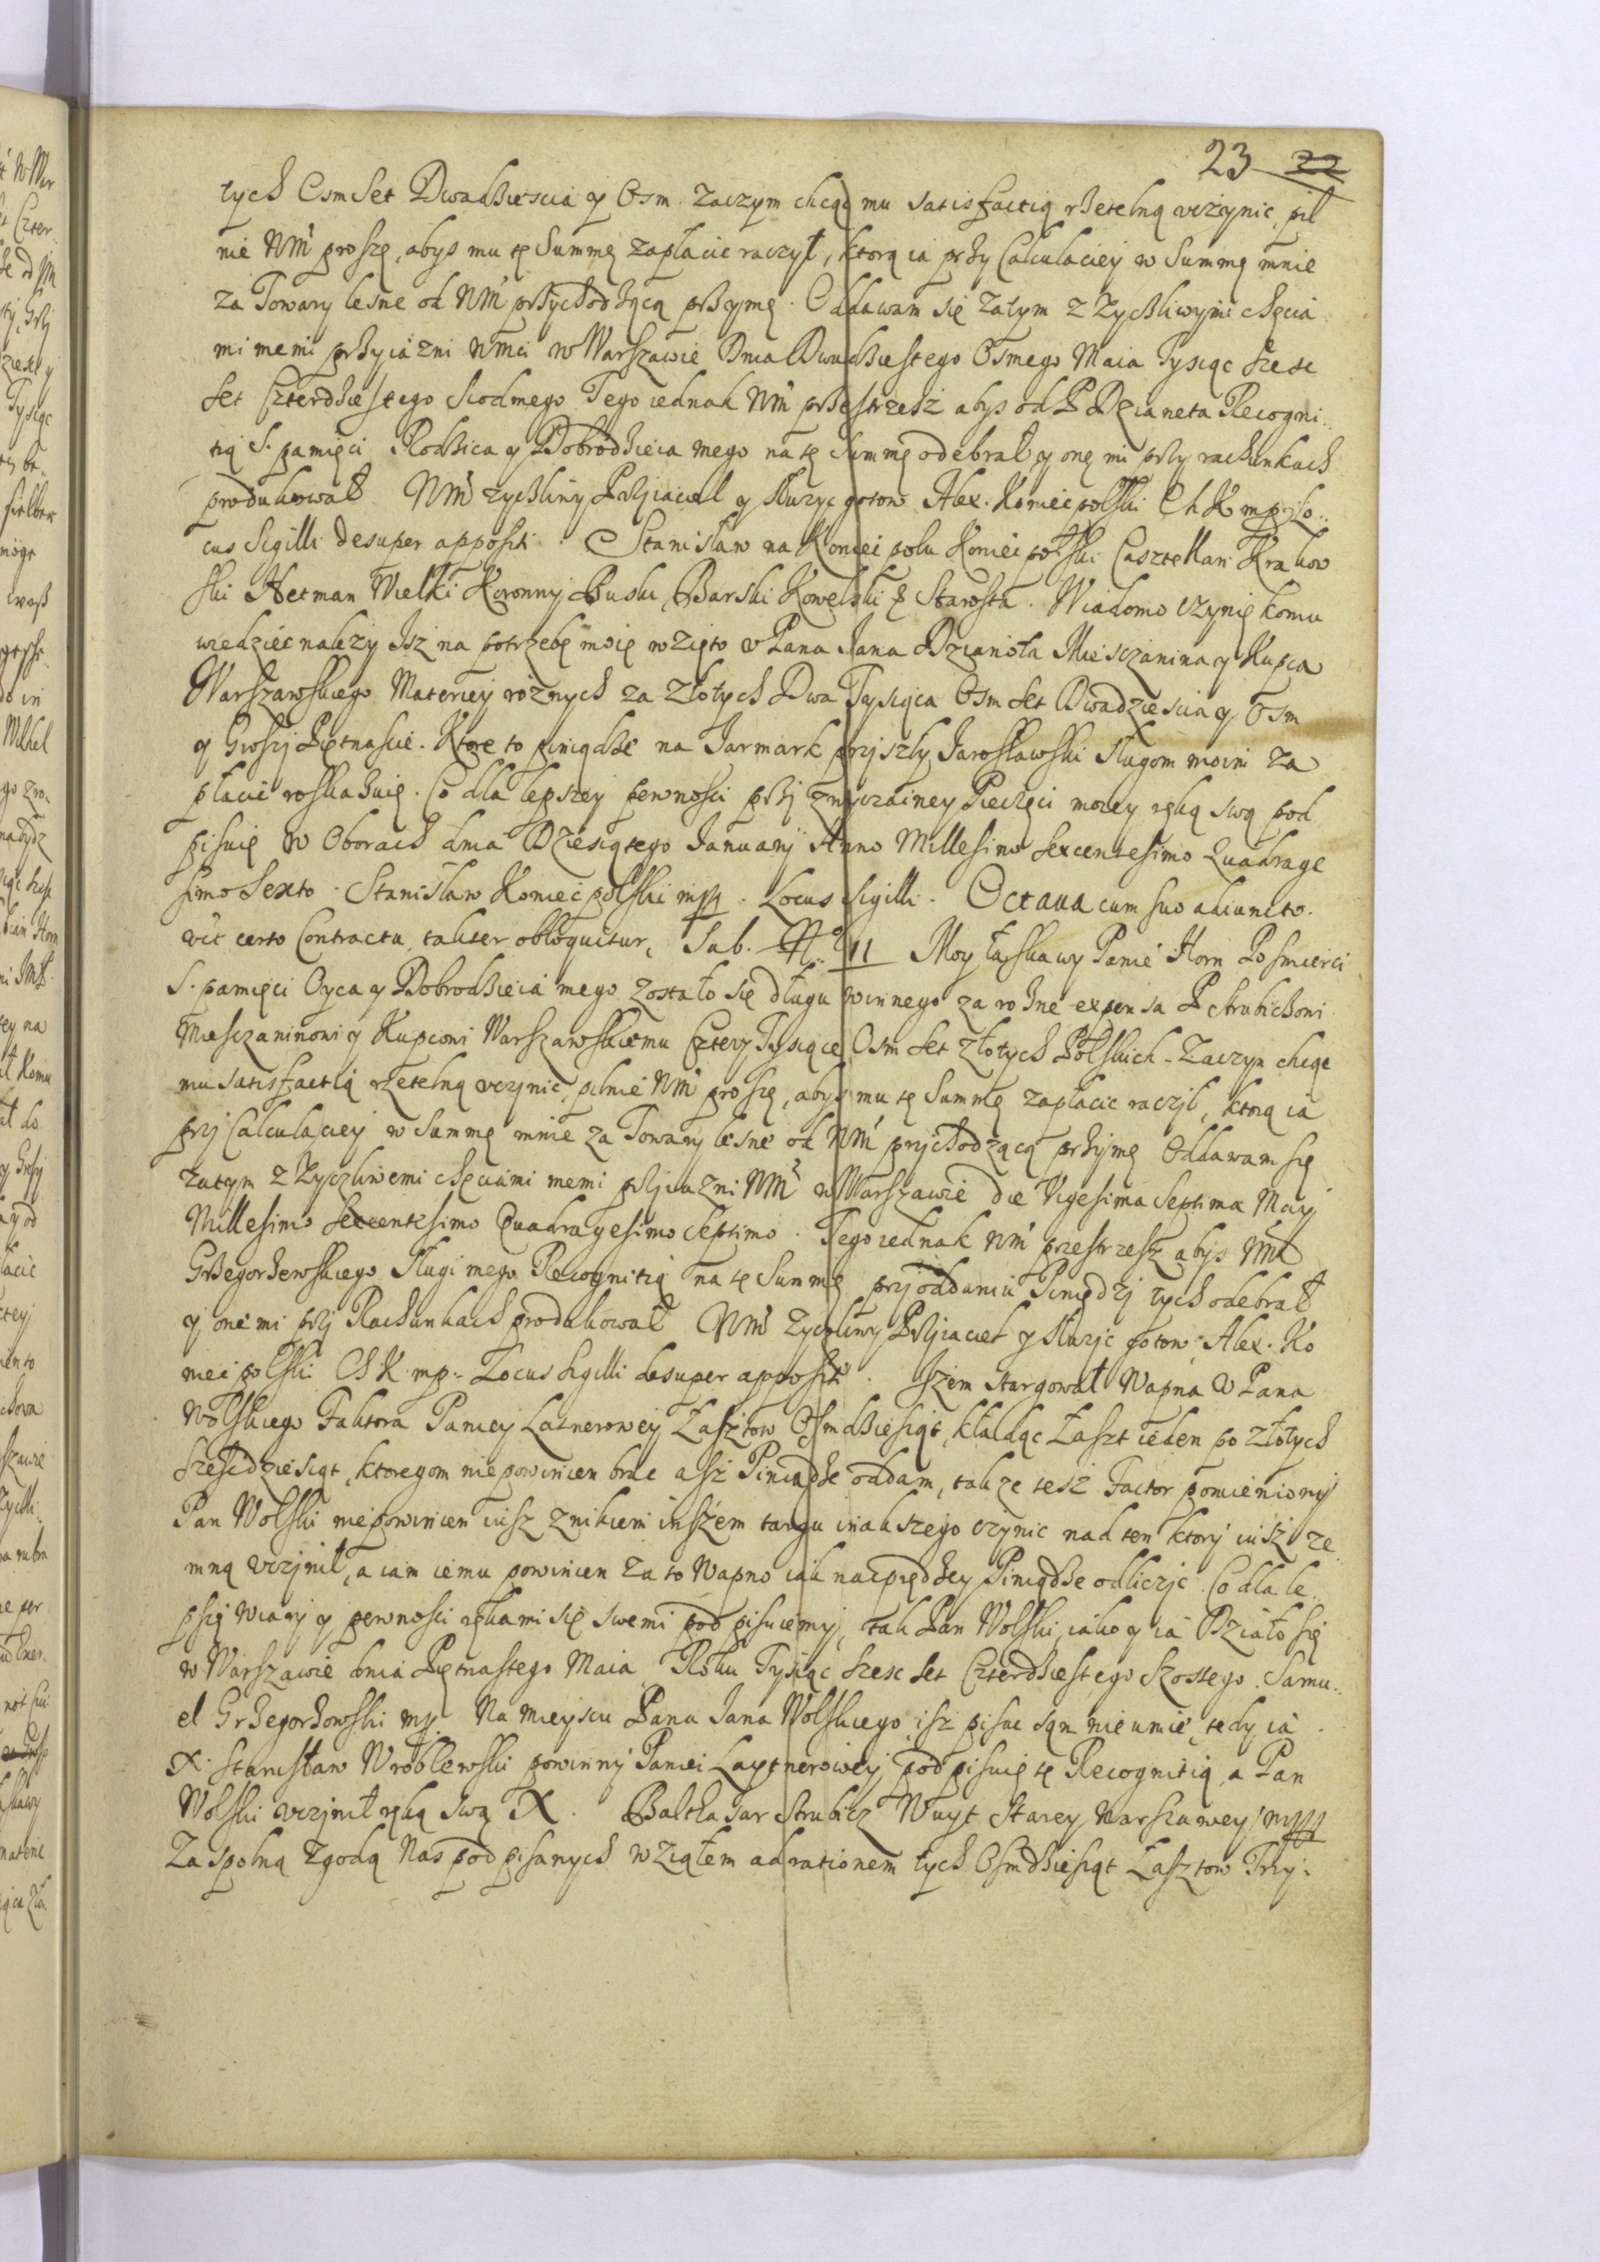 23 22
tych Osmset Dwadziescia y Osm. Zaczym chcąc mu satisfactią rzetelną uczynic, pil
nie WM prosżę, abys mu tę Summę zapłacic raczył, ktorą ia przy Calculaciey w Summę mnie
za Towary lesne od WM przychodzącą przymę. Oddawam się zatym z Zyczliwymi chęcia
mi memi przyiazni WMci w Warszawie Dnia Dwudziestego Osmego Maia Tysiąc szesc
set Czterdziestego Siodmego Tego iednak WM przestrzesz abys od P Dzianeta Recogni:
tią S. pamięci Rodzica y Dobrodzieia mego na tę Summę odebrał y onę mi przy rachunkach
produkował WM zyczliwy Przjaciel y służyc gotow Alex. Koniecpolski Ch K mp Lo:
cus Sigilli desuper appositi. Stanisław na Koniecpolu Koniecpolski Casztellan Krakow
ski Hetman Wielki Koronny Buski, Barski Kowelski & Starosta. Wiadomo czynię komu
wiedziec nalezy Isz na potrzebę moię wzięto u Pana Jana Dzianota Miesczanina y Kupca
Warszawskiego Materiey roznych za Złotych Dwa Tysiąca Osm set Dwadziescia y Osm
y Groszy Piętnascie. Ktore to piniądze na Jarmark przjszły Jarosławski sługom moim za
płacic roskazuię. Co dla lepszey pewnosci przj zwyczainey Pieczęci moiey ręką swą pod
pisuię w Oborach dnia Dziesiątego Januarij Anno Millesimo Sexcentesimo Quadrage
simo Sexto. Stanisław Koniecpolski mpp. Locus Sigilli. Octava cum suo adiuncto.
uti certo Contractu taliter obloquitur, Sub. No 11 Moy łaskawy Panie Horn Po smierci
S. pamięci Oyca y Dobrodzieia mego zostało się długu winnego za rozne expensa P Strubiczoni
Miesczaninowi y Kupcowi Warszawskiemu Cztery Tysiące Osm set złotych Polskich. Zaczym chcąc
mu satisfactią rzetelną uczynic, pilnie WM proszę, abys mu tę Summę zapłacic raczył, ktorą ia
przj Calculaciey w Summę mnie za Towary lesne od WM przychodzącą przymę Oddawam się
zatym z Zyczliwemi chęciami memi przjiazni WM w Warszawie die Vigesima Septima Maij
Millesimo Sexcentesimo Quadragesimo Septimo. Tego iednak WM przestrzesz abys
Grzegorzewskiego Sługi mego Recognitią na tę Summę przj oddaniu Pieniędzj tych odebrał
y one mi przj Rachunkach produkował WM Zyczliwy Przjaciel y służyc gotow Alex. Ko
niecpolski Ch K mp. Locus sigilli desuper appositi. Iszem stargował Wapna u Pana
Wolskiego Faktora Paniey Latnerowey Łasztow Osmdziesiąt, kładąc Łaszt ieden po złotych
szescdziesiąt, ktoregom niepowinien brac asz Piniądze oddam, takze tesz Factor pomieniony
Pan Wolski niepowinien iusz znikiem inszem targu inakszego czynic nad ten ktory iusz ze
mną uczynił, a iam iemu powinien za to Wapno iak naprędzey Piniądze odliczyc. Co dla le:
pszej wiary y pewnosci rękami się swemi podpisuiemy, tak Pan Wolski iako y ia Działo się
w Warszawie dnia Piętnastego Maia Roku Tysiąc szesc set Czterdziestego Szostego. Samu:
el Grzegorzowski mp. Na mieyscu Pana Jana Wolskiego, isz pisac sąm nie umie, tedy ia
X. Stanisław Wroblewski powinny Paniei Laytnerowey podpisuię tę Recognitią, a Pan
Wolski uczynił ręką swą X. Balthasar Strubicz Wuyt Starey Warszawey mpp
Za spolną zgodą Nas podpisanych wziąłem ad rationem tych Osmdziesiąt Łasztow Trzy: